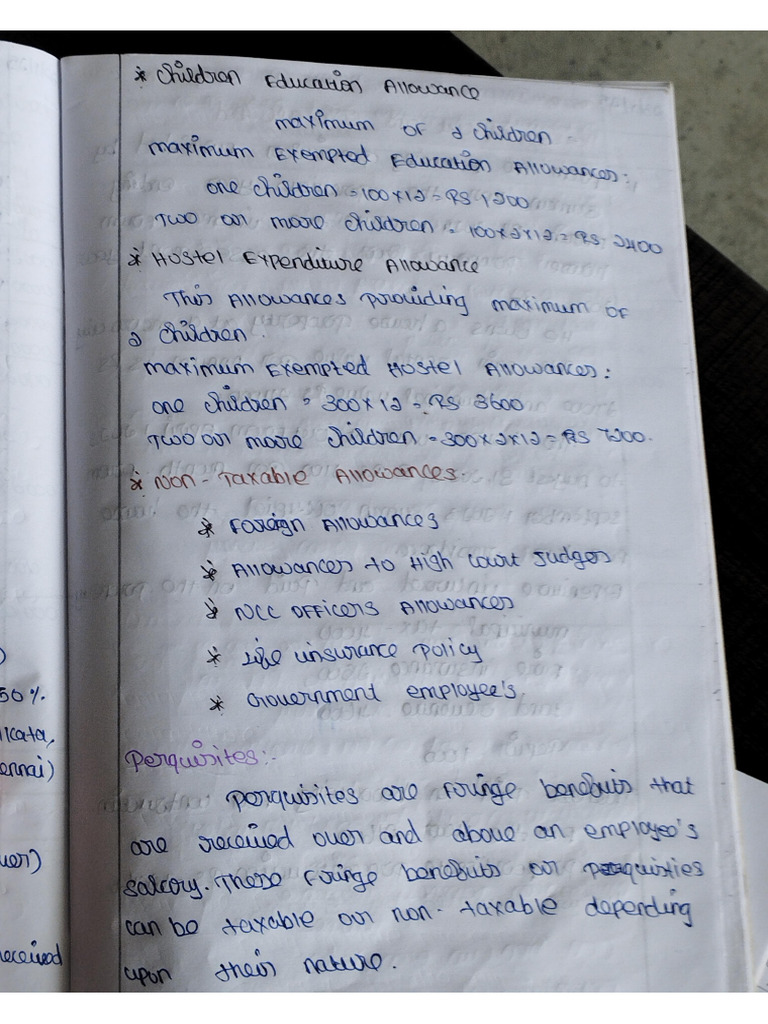 * Children Education Allowance
maximum of 2 children
maximum Exempted Education Allowances:
one children = 100x12 = Rs 1200
Two or more children = 100x2x12 = Rs 2400
* Hostel Expenditure Allowance
This Allowances providing maximum of
2 children.
maximum Exempted Hostel Allowances:
one children = 300x12 = Rs 3600
Two or more children = 300x2x12 = Rs 7200.
* Non-Taxable Allowances:
* Foreign Allowances
* Allowances to High Court Judges
* NCC officers Allowances
* Life insurance policy
* Government employee's
Perquisites:-
Perquisites are fringe benefits that
are received over and above an employee's
salary. These fringe benefits or perquisties
can be taxable or non-taxable depending
upon their nature.
)
50%
ennai)
eceived